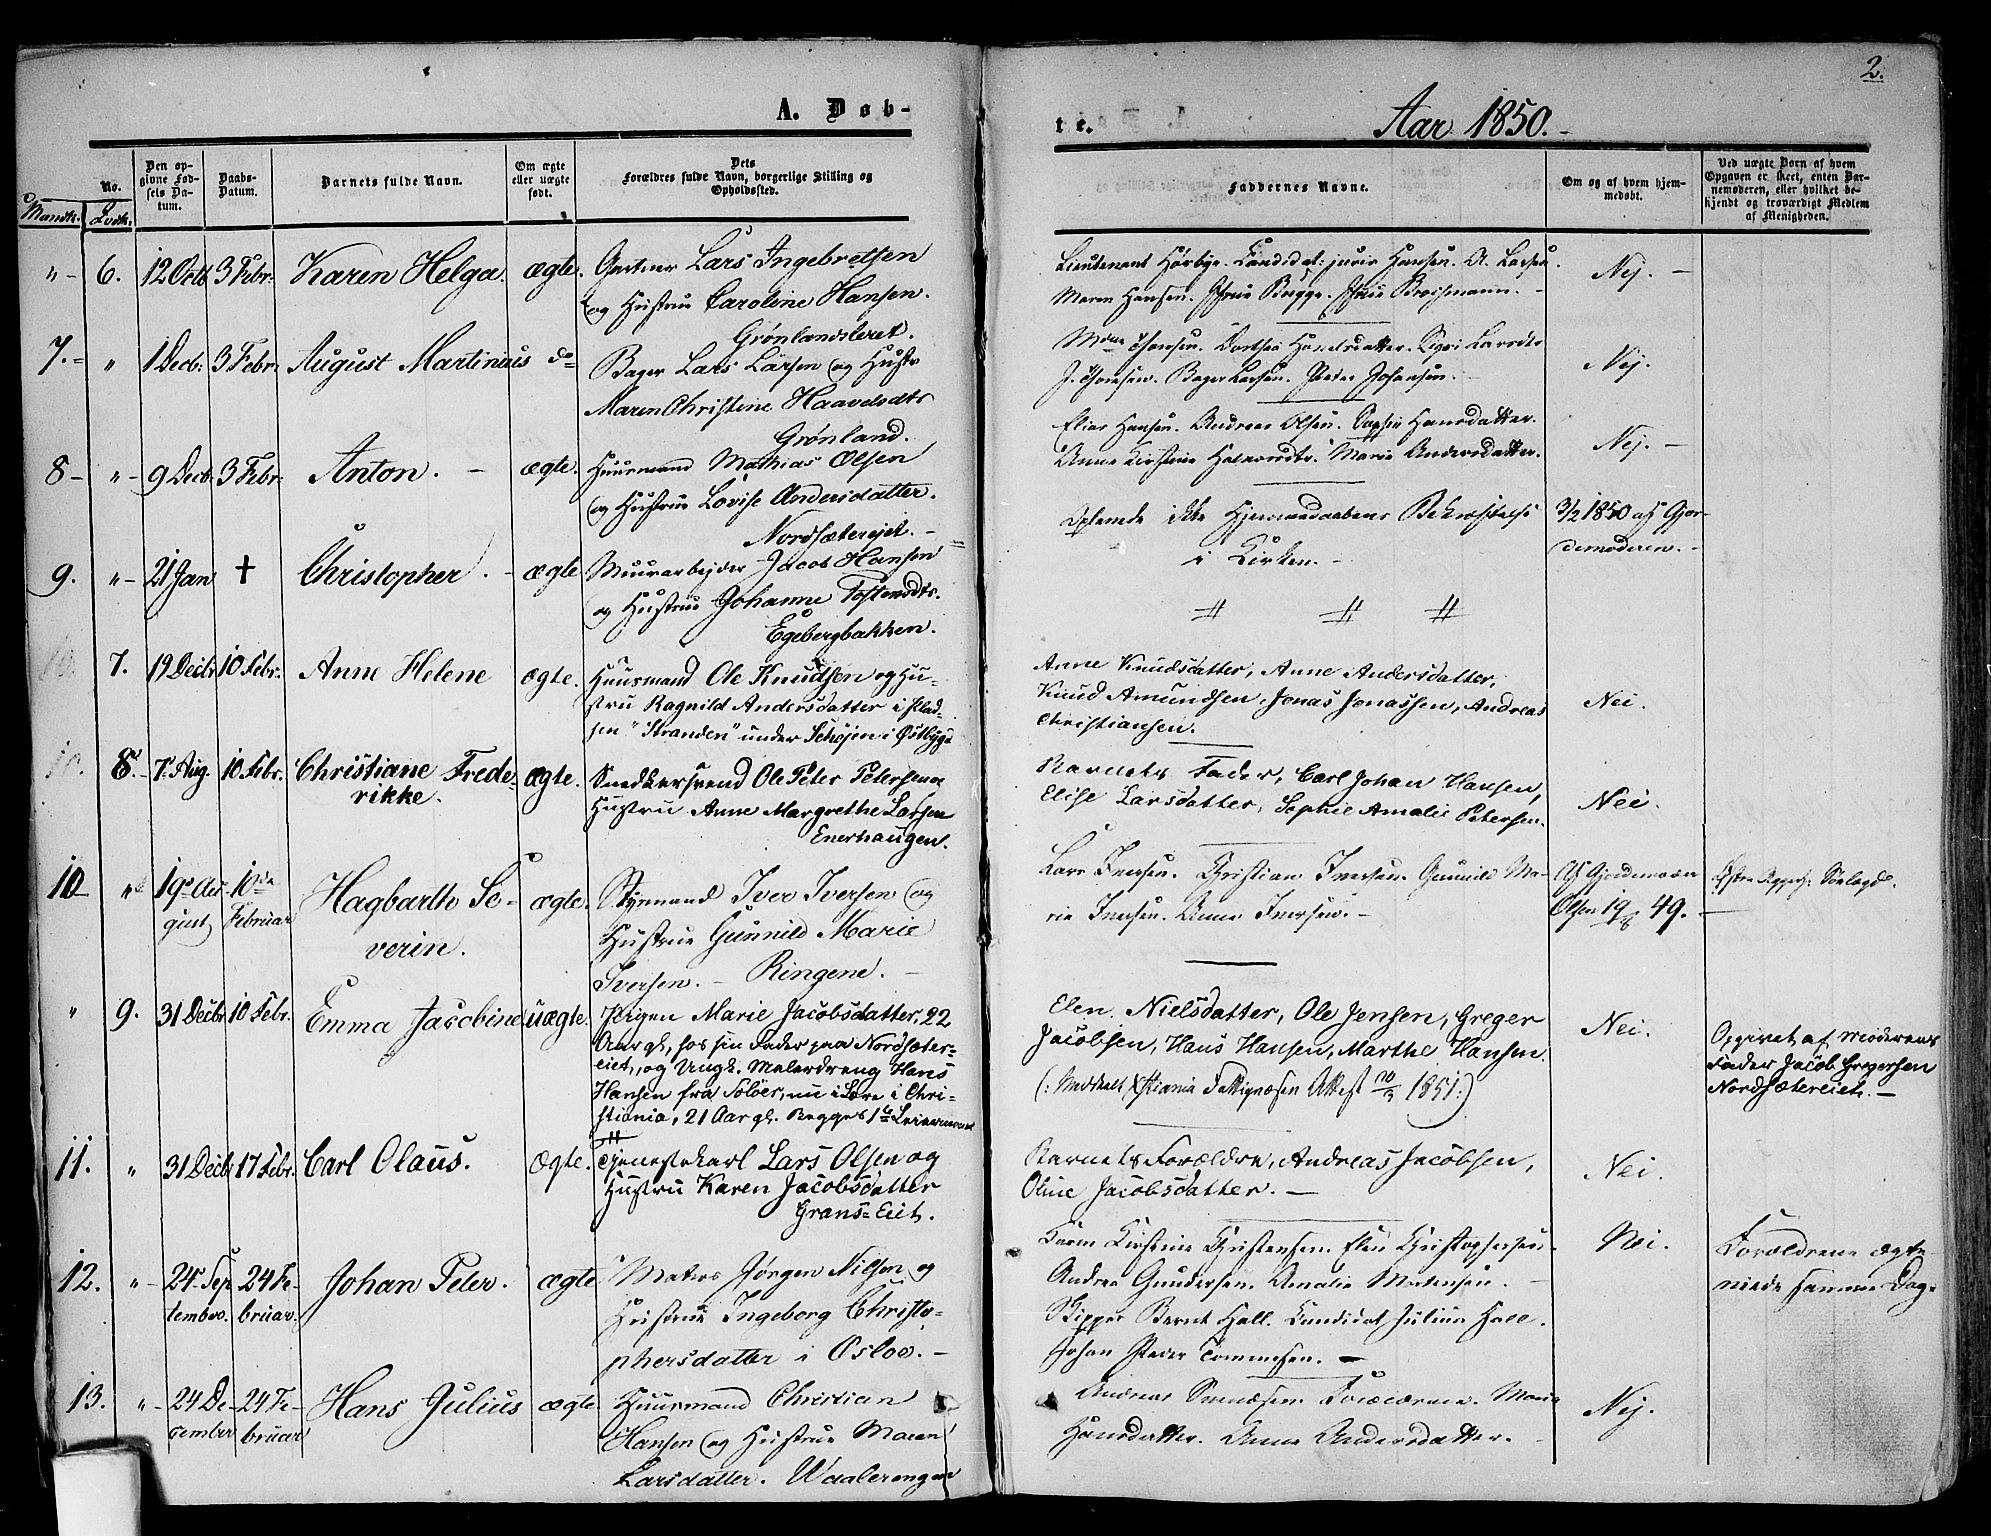 2.
A. Døb-
te.
Aar 1850.
No.
Mandk.
Qvdk.
Den op-
givne Fød-
sels Da-
tum.
Daabs-
Datum.
Barnets fulde Navn.
Om ægte
eller uægte
født.
Dets
Forældres fulde Navn, borgerlige Stilling og
Opholdssted.
Faddernes Navne.
Om og af hvem hjem-
medøbt.
Ved uægte Børn af hvem
Opgaven er skeet, enten Bar-
nemoderen, eller hvilket be-
kjendt og troværdigt Medlem
af Menigheden.
" - 6. 12 Octb 3 Febr: Karen Helga. ægte. Gartner Lars Ingebretsen
og Hustrue Caroline Hansen.
Grønlandsleret.
Lieutenant Hørbye. Candidat: juris Hansen. A. Larsen.
Maren Hansen. Bugge.
Nej. -
7. - " 1 Decb: 3 Febr: August Martinius do Bager Lars Larsen og Hustr
Maren Christine Haavelsdtr
Grønland.
Dorthea Hansdatter. Sigri Larsdtr
Bager Larsen. Peder Johansen.
Nej.
8 - " - 9 Decb. 3 Febr: Anton. - ægte. Huusmand Mathias Olsen
og Hustrue Lovise Andersdatter.
Nordsæterejet. -
Elias Hansen. Andreas Olsen. Sophie Hansdatter.
Anne Kirstine Halvorsdtr. Marie Andersdatter.
Nej. -
9. " - 21 Jan † Christopher. - ægte Muurarbejder Jacob Hansen
og Hustrue Johanne Tostensdtr.
Egebergbakken.
Oplevede ikke Hjemmedaabens Bekræftelse
i Kirken. -
3/2 1850 af Gjor-
demoderen. -
7. 19 Decbr 10 Febr. Anne Helene ægte. Huusmand Ole Knudsen og Hu-
stru Ragnild Andersdatter i Plad-
sen "Stranden" under Schøjen i Østbyge
Anne Knudsdatter, Anne Andersdatter,
Knud Amundsen, Jonas Jonassen, Andreas
Christiansen.
Nei.
8. - 7. Aug. 10 Febr. Christiane Frede-
rikke.
ægte. Snedkersvend Ole Peter Petersen og
Hustru Anne Margrethe Larsen
Enerhaugen.
Barnets Fader, Carl Johan Hansen,
Elise Larsdatter, Sophie Amalie Petersen.
Nei.
10 " 19de Au-
gust
10de
Februar
Hagbarth Se-
verin.
ægte. Styrmand Iver Iversen og
Hustrue Gunnild Marie
Iversen. - Ringene. -
Lars Iversen. Christian Iversen. Gunnild Ma-
rie Iversen. Anne Iversen. -
Af Gjordemoder
Olsen 19/8 49.
" 9. 31 Decbr 10 Febr. Emma Jacobine uægte. Pigen Marie Jacobsdatter, 22
Aar gl, hos sin Fader paa Nordsæter-
eiet, og Ungk. Malerdreng Hans
Hansen fra Soløer, nu i Lære i Chri-
stiania, 21 Aar gl. Begges 1ste Leiermaal
Elen Nielsdatter, Ole Jensen, Greger
Jacobsen, Hans Hansen, Marthe Hansen.
(: Meddeelt Xstiania Fattigvæsen Attest 10/3 1851:)
Nei.
Opgivet af moderens
Fader Jacob Gregersen
Nordsætereiet. -
11. " 31 Decbr 17 Febr. Carl Olaus. Ægte. Tjenestekarl Lars Olsen og
Hustru Karen Jacobsdatter
Grans-Eiet.
Barnets Forældre, Andreas Jacobsen,
Oline Jacobsdatter. -
Nei.
12. " - 24 Sep
tember.
24 Fe-
bruar.
Johan Peter. ægte Matros Jørgen Nilsen og
Hustrue Ingeborg Christo-
phersdatter i Osloe. -
Karen Kirstine Christensen. Elen Christophersen.
Andrea Gundersen. Amalie Mortensen. -
Skipper Bernt Hall. Candidat Julius Hall.
Johan Peder Tommesen. -
Nei.
Forældrene ægte-
viede samme Dag.
13. " - 24 De-
cember
24 Fe-
bruar
Hans Julius ægte. Huusmand Christian
Hansen og Hustrue Maren
Larsdatter. Waalerengen
Andreas Svendsen. Forældrene. Maria
Hansdatter. Anne Andersdatter. -
Nej.